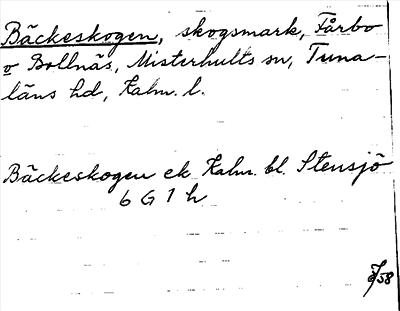 Bäckeskogen, skogsmark, Fårbo
o Bollnäs, Misterhults sn, Tuna-
läns hd, Kalm. l.
Bäckeskogen ek Kalm. bl. Stensjö
6 G 1 h
58